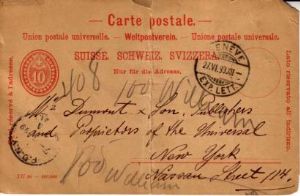 Carte postale.
Union postale universelle. — Weltpostverein. — Unione postale universale.
SUISSE. SCHWEIZ. SVIZZERA.
Nur für die Adresse.
10
GENÈVE
EXP. LETT.
408
100 William
Dumont & Son, Publishers
and Proprietors of the Universal
New York
Nassau Street
100 William